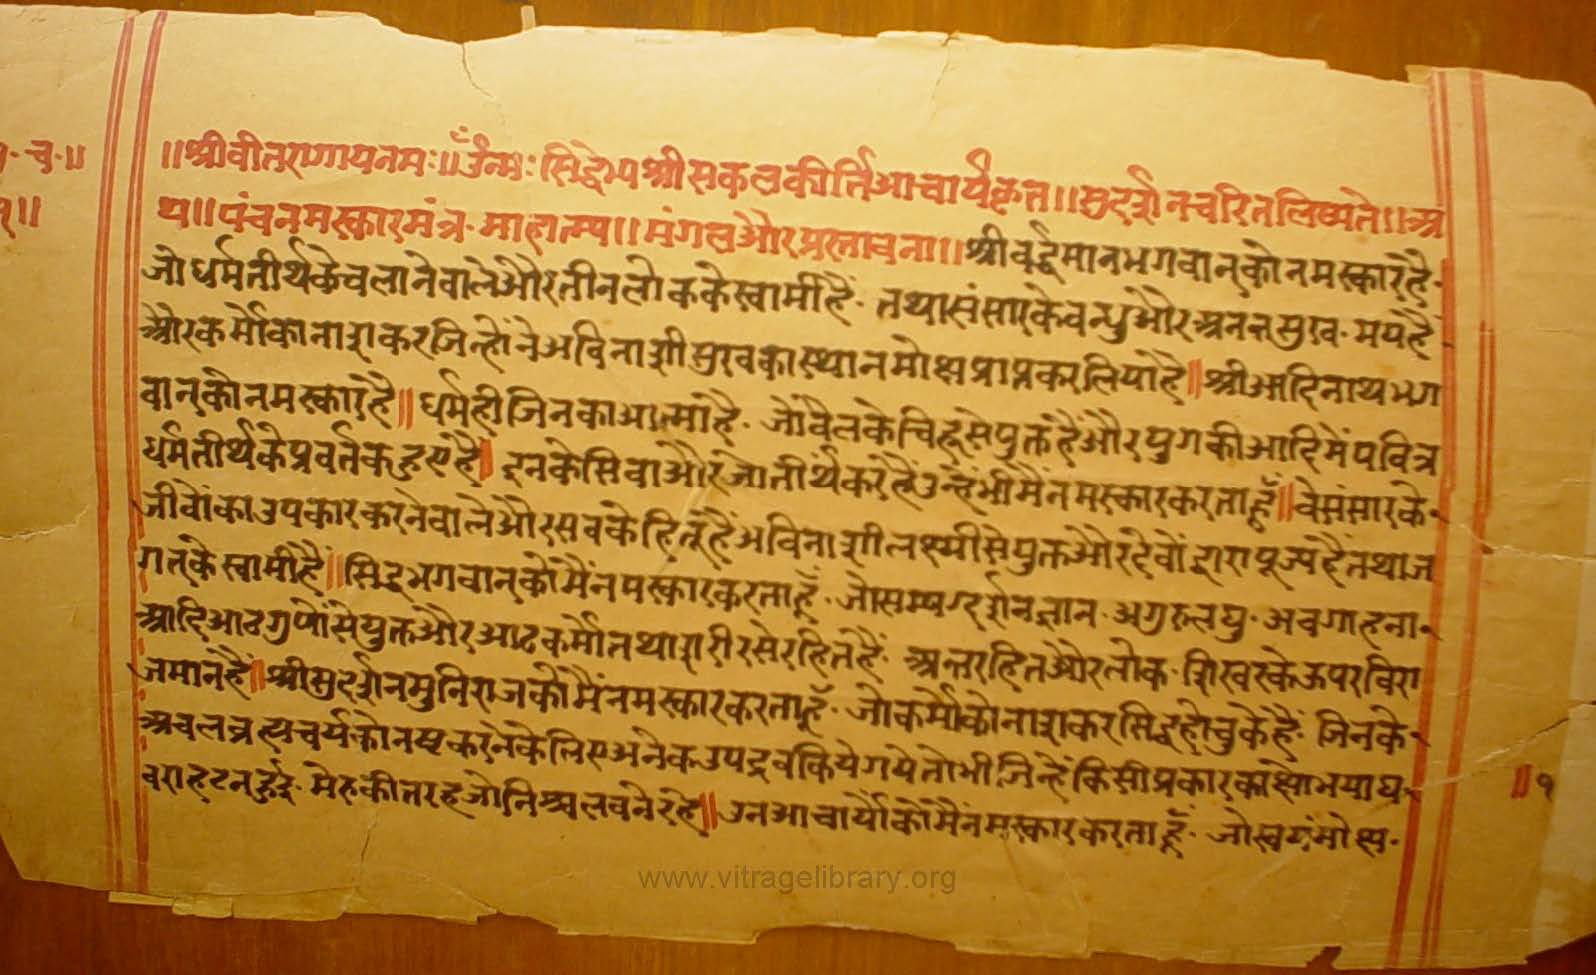 च॰॥
॥श्रीवीतरागायनमः॥ॐनमः सिद्धेभ्य श्रीसकलकीर्तिआचार्यकृत॥सुदर्शनचरितलिष्यते॥अ
थ॥पंचनमस्कारमंत्र-माहात्म्य॥मंगलऔरप्रस्तावना॥श्रीवर्द्धमानभगवान्कोनमस्कारहै-
जोधर्मतीर्थकेचलानेवालेऔरतीनलोककेस्वामीहैं- तथासंसारकेवन्धुऔरअनन्तसुख-मयहैं
औरकर्मोंकानाशकरजिन्होंनेअविनाशीसुखकास्थानमोक्षप्राप्तकरलियाहै॥श्रीआदिनाथभग
वान्कोनमस्कारहै॥धर्महीजिनकाआत्माहै- जोवैलकेचिह्नसेयुक्तहैंऔरयुगकीआदिमेंपवित्र
धर्मतीर्थकेप्रवर्तकहुएहैं॥ इनकेसिवाऔरजोतीर्थंकरहैंउन्हेंभीमैंनमस्कारकरताहूँ॥वेसंसारके-
जीवोंकाउपकारकरनेवालेऔरसवकेहितूहैंअविनाशीलक्ष्मीसेयुक्तऔरदेवोंद्वारापूज्यहैंतथाज
गत्केस्वामीहैं॥सिद्धभगवान्कोमैंनमस्कारकरताहूँ- जोसम्यग्दर्शनज्ञान-अगुरुलघु-अवगाहना-
आदिआठगुणोंसेयुक्तऔरआठकर्मोतथाशरीरसेरहितहैं- अन्तरहितऔरलोक-शिखरकेऊपरविरा
जमानहैं॥श्रीसुदर्शनमुनिराजकोमैंनमस्कारकरताहूँ- जोकर्मोंकोनाशकरसिद्धहोचुकेहैं- जिनके-
अचलव्रह्मचर्यकोनष्टकरनेकेलिएअनेकउपद्रवकियेगयेतोभीजिन्हेंकिसीप्रकारकाक्षोभयाघ-
वराहटनहुई- मेरुकीतरहजोनिश्चलवनेरहे॥उनआचार्योंकोमैंनमस्कारकरताहूँ- जोस्वयंमोक्ष-
॥१
www.vitragelibrary.org